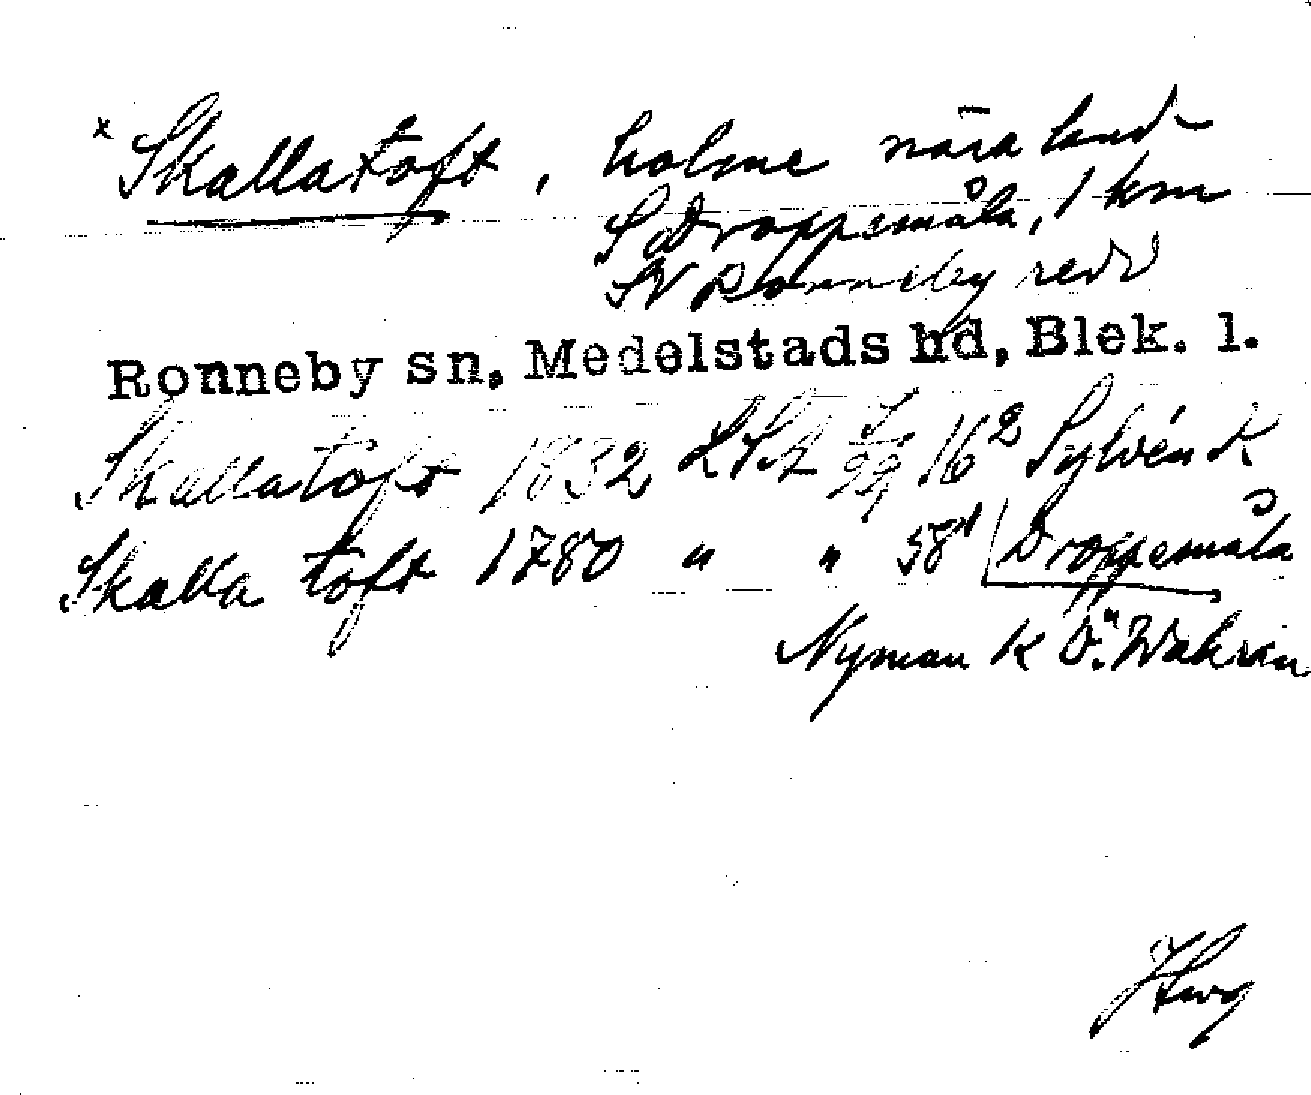 x Skallatoft, holme nära land
S Droppemåla, 1 km
SV Ronneby redd
Ronneby sn, Medelstads hd, Blek. l.
Skallatoft 1832 LSA 16² Sylvén K
Skalla toft 1780 " " 58 Droppemåla
Nyman K Ö. Wahrän